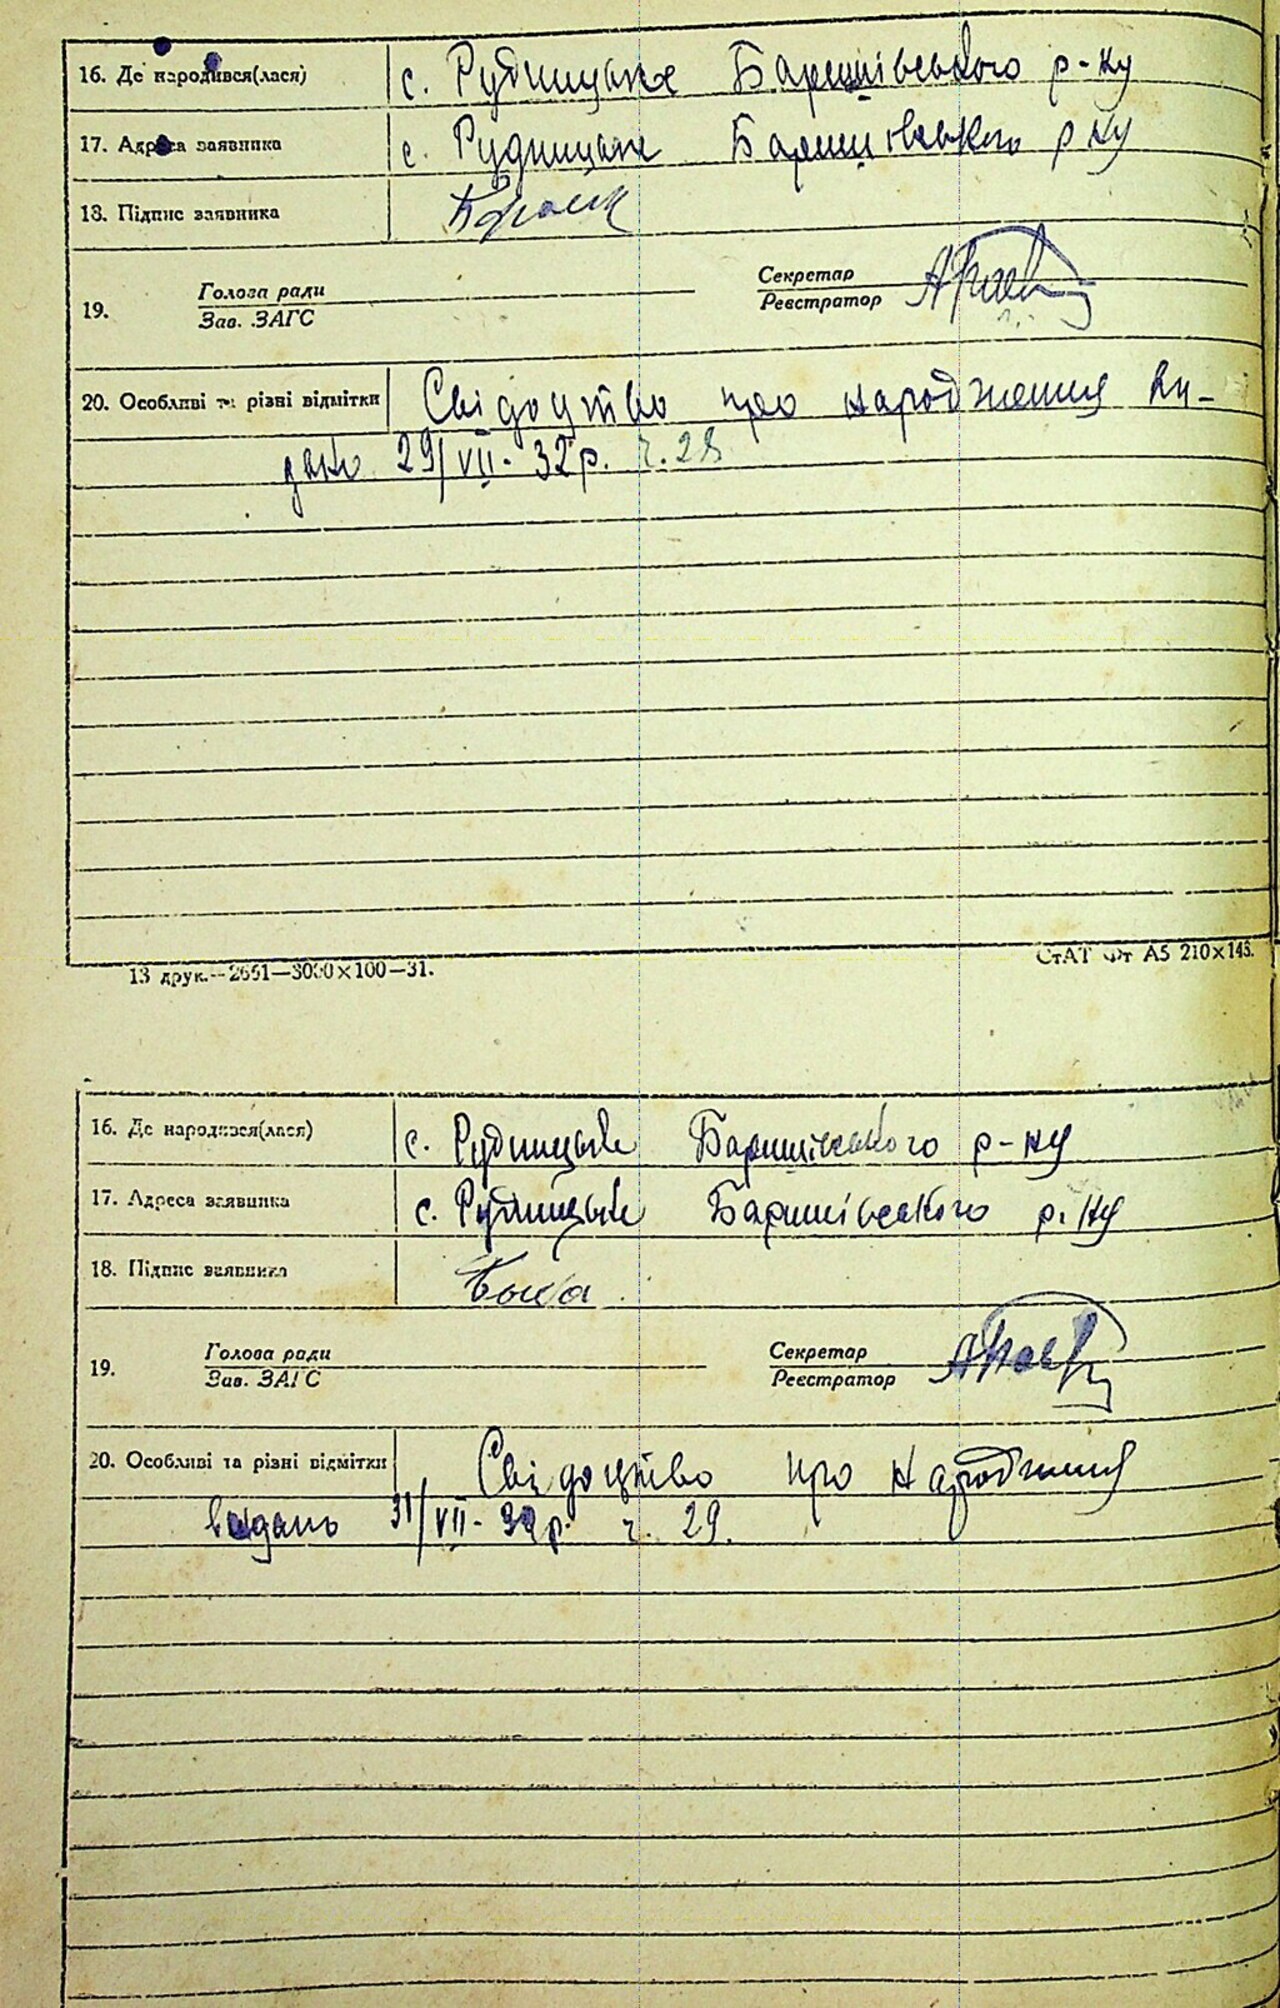 16. Де народився(лася) с. Рудницьке Баришівського р-ну
17. Адреса заявника с. Рудницьке Баришівського р ну
18. Підпис заявника
Голова ради Секретар
19. Зав. ЗАГС Реєстратор
20. Особливі та різні відмітки Свідоцтво про народження ви-
дано 29/VII- 32р. ч. 28
13 друк.—2651—3000×100—31. СтАТ Фт А5 210×148.
16. Де народився(лася) с. Рудницьке Баришівського р-ну
17. Адреса заявника с. Рудницьке Баришівського р. ну
18. Підпис заявника
Голова ради Секретар
19. Зав. ЗАГС Реєстратор
20. Особливі та різні відмітки Свідоцтво про народження
видано 31/VII- 32р. ч. 29.